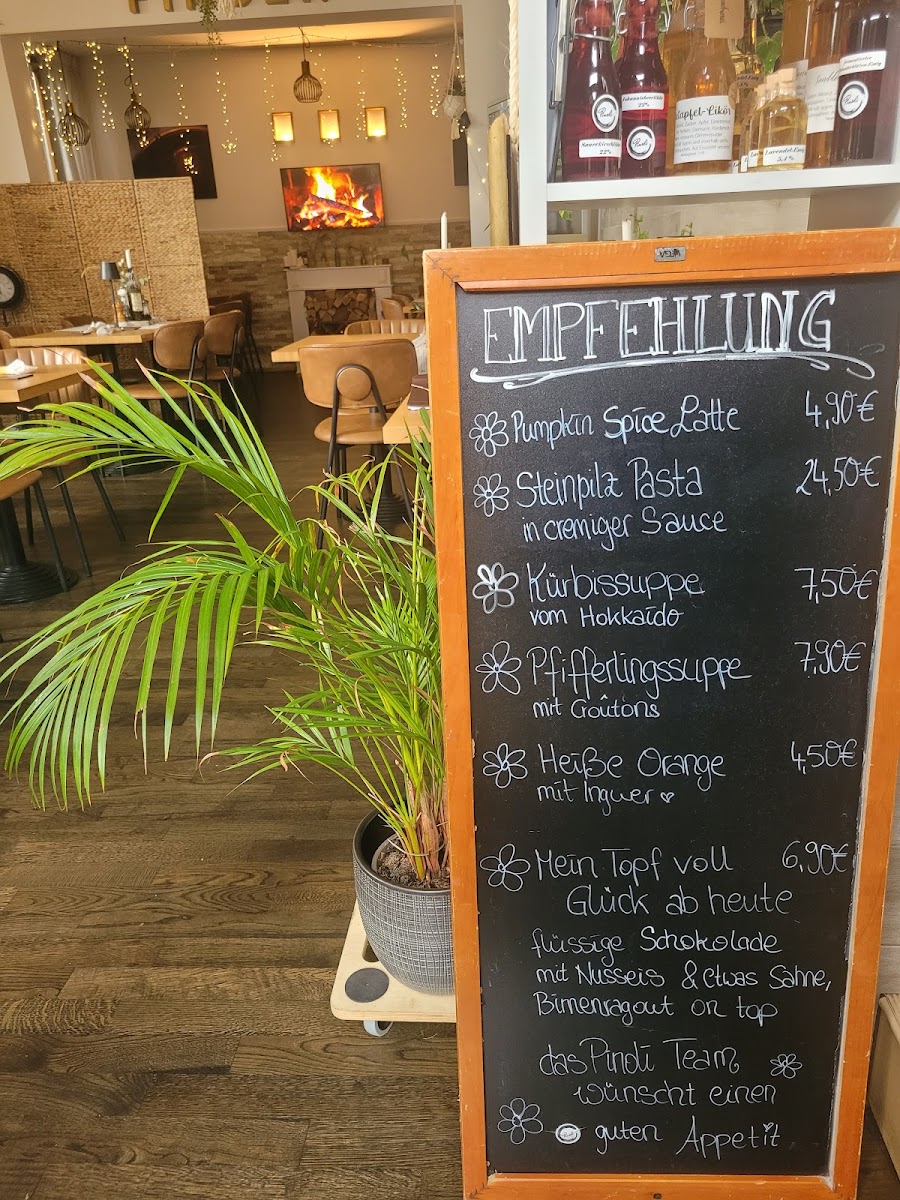 Sauerkirschlikör
22%
Johannisbeerlikör
22%
Apfel-Likör
Lavendel-Essig
5,1%
VELUX
EMPFEHLUNG
Pumpkin Spice Latte 4,90€
Steinpilz Pasta 24,50€
in cremiger Sauce
Kürbissuppe 7,50€
vom Hokkaido
Pfifferlingssuppe 7,90€
mit Goûtons
Heiße Orange 4,50€
mit Ingwer
Mein Topf voll 6,90€
Glück ab heute
flüssige Schokolade
mit Nusseis & etwas Sahne,
Birnenragout on top
das Pindi Team
wünscht einen
guten Appetit